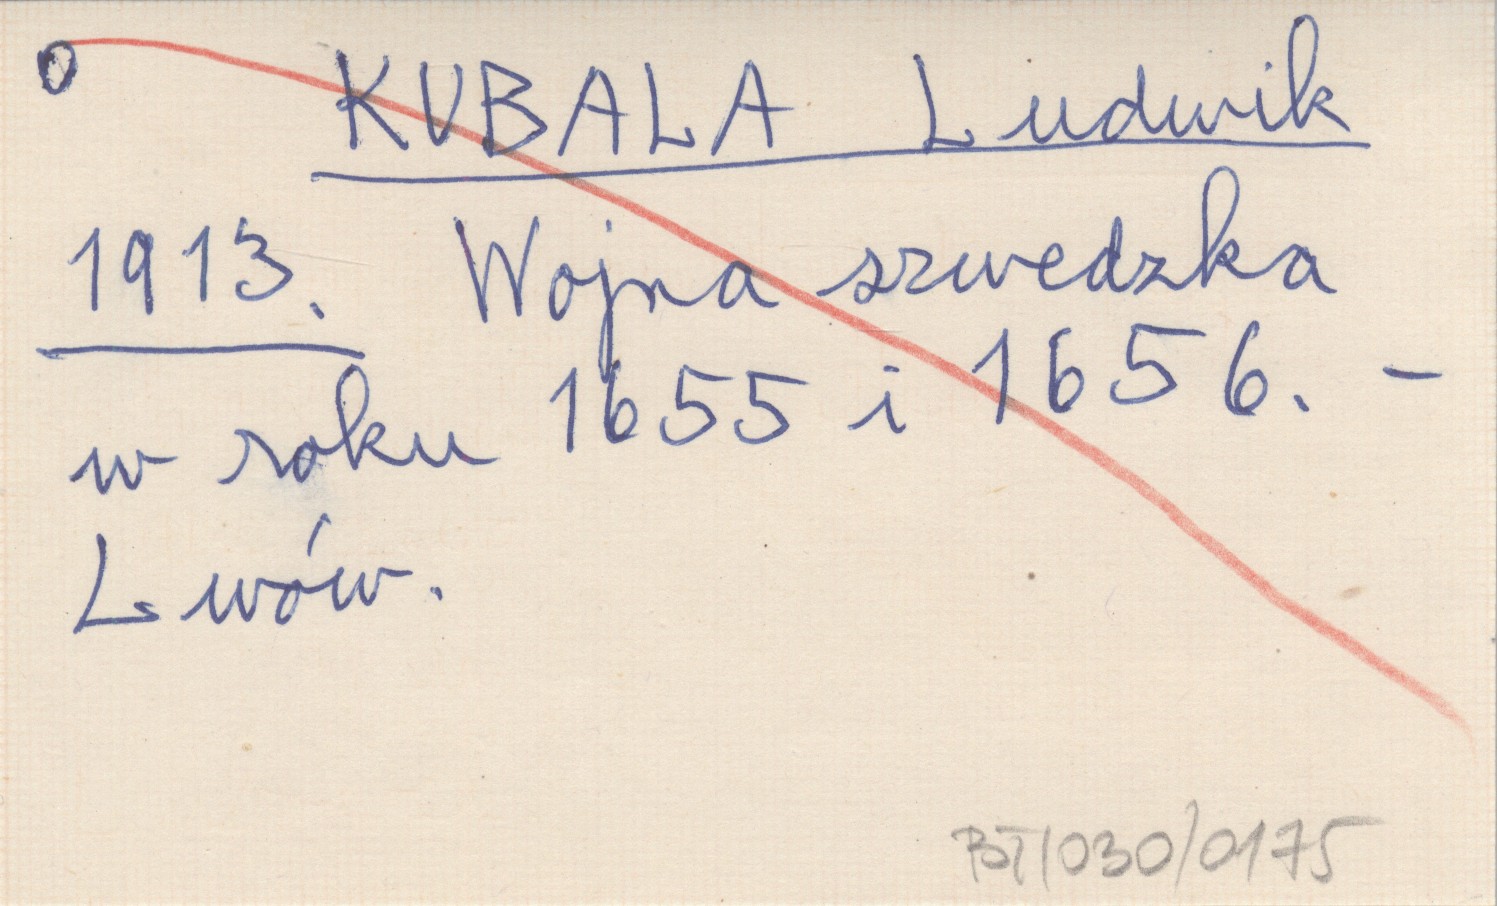 0 KUBALA Ludwik
1913. Wojna szwedzka
w roku 1655 i 1656. -
Lwów.
BT/030/0175